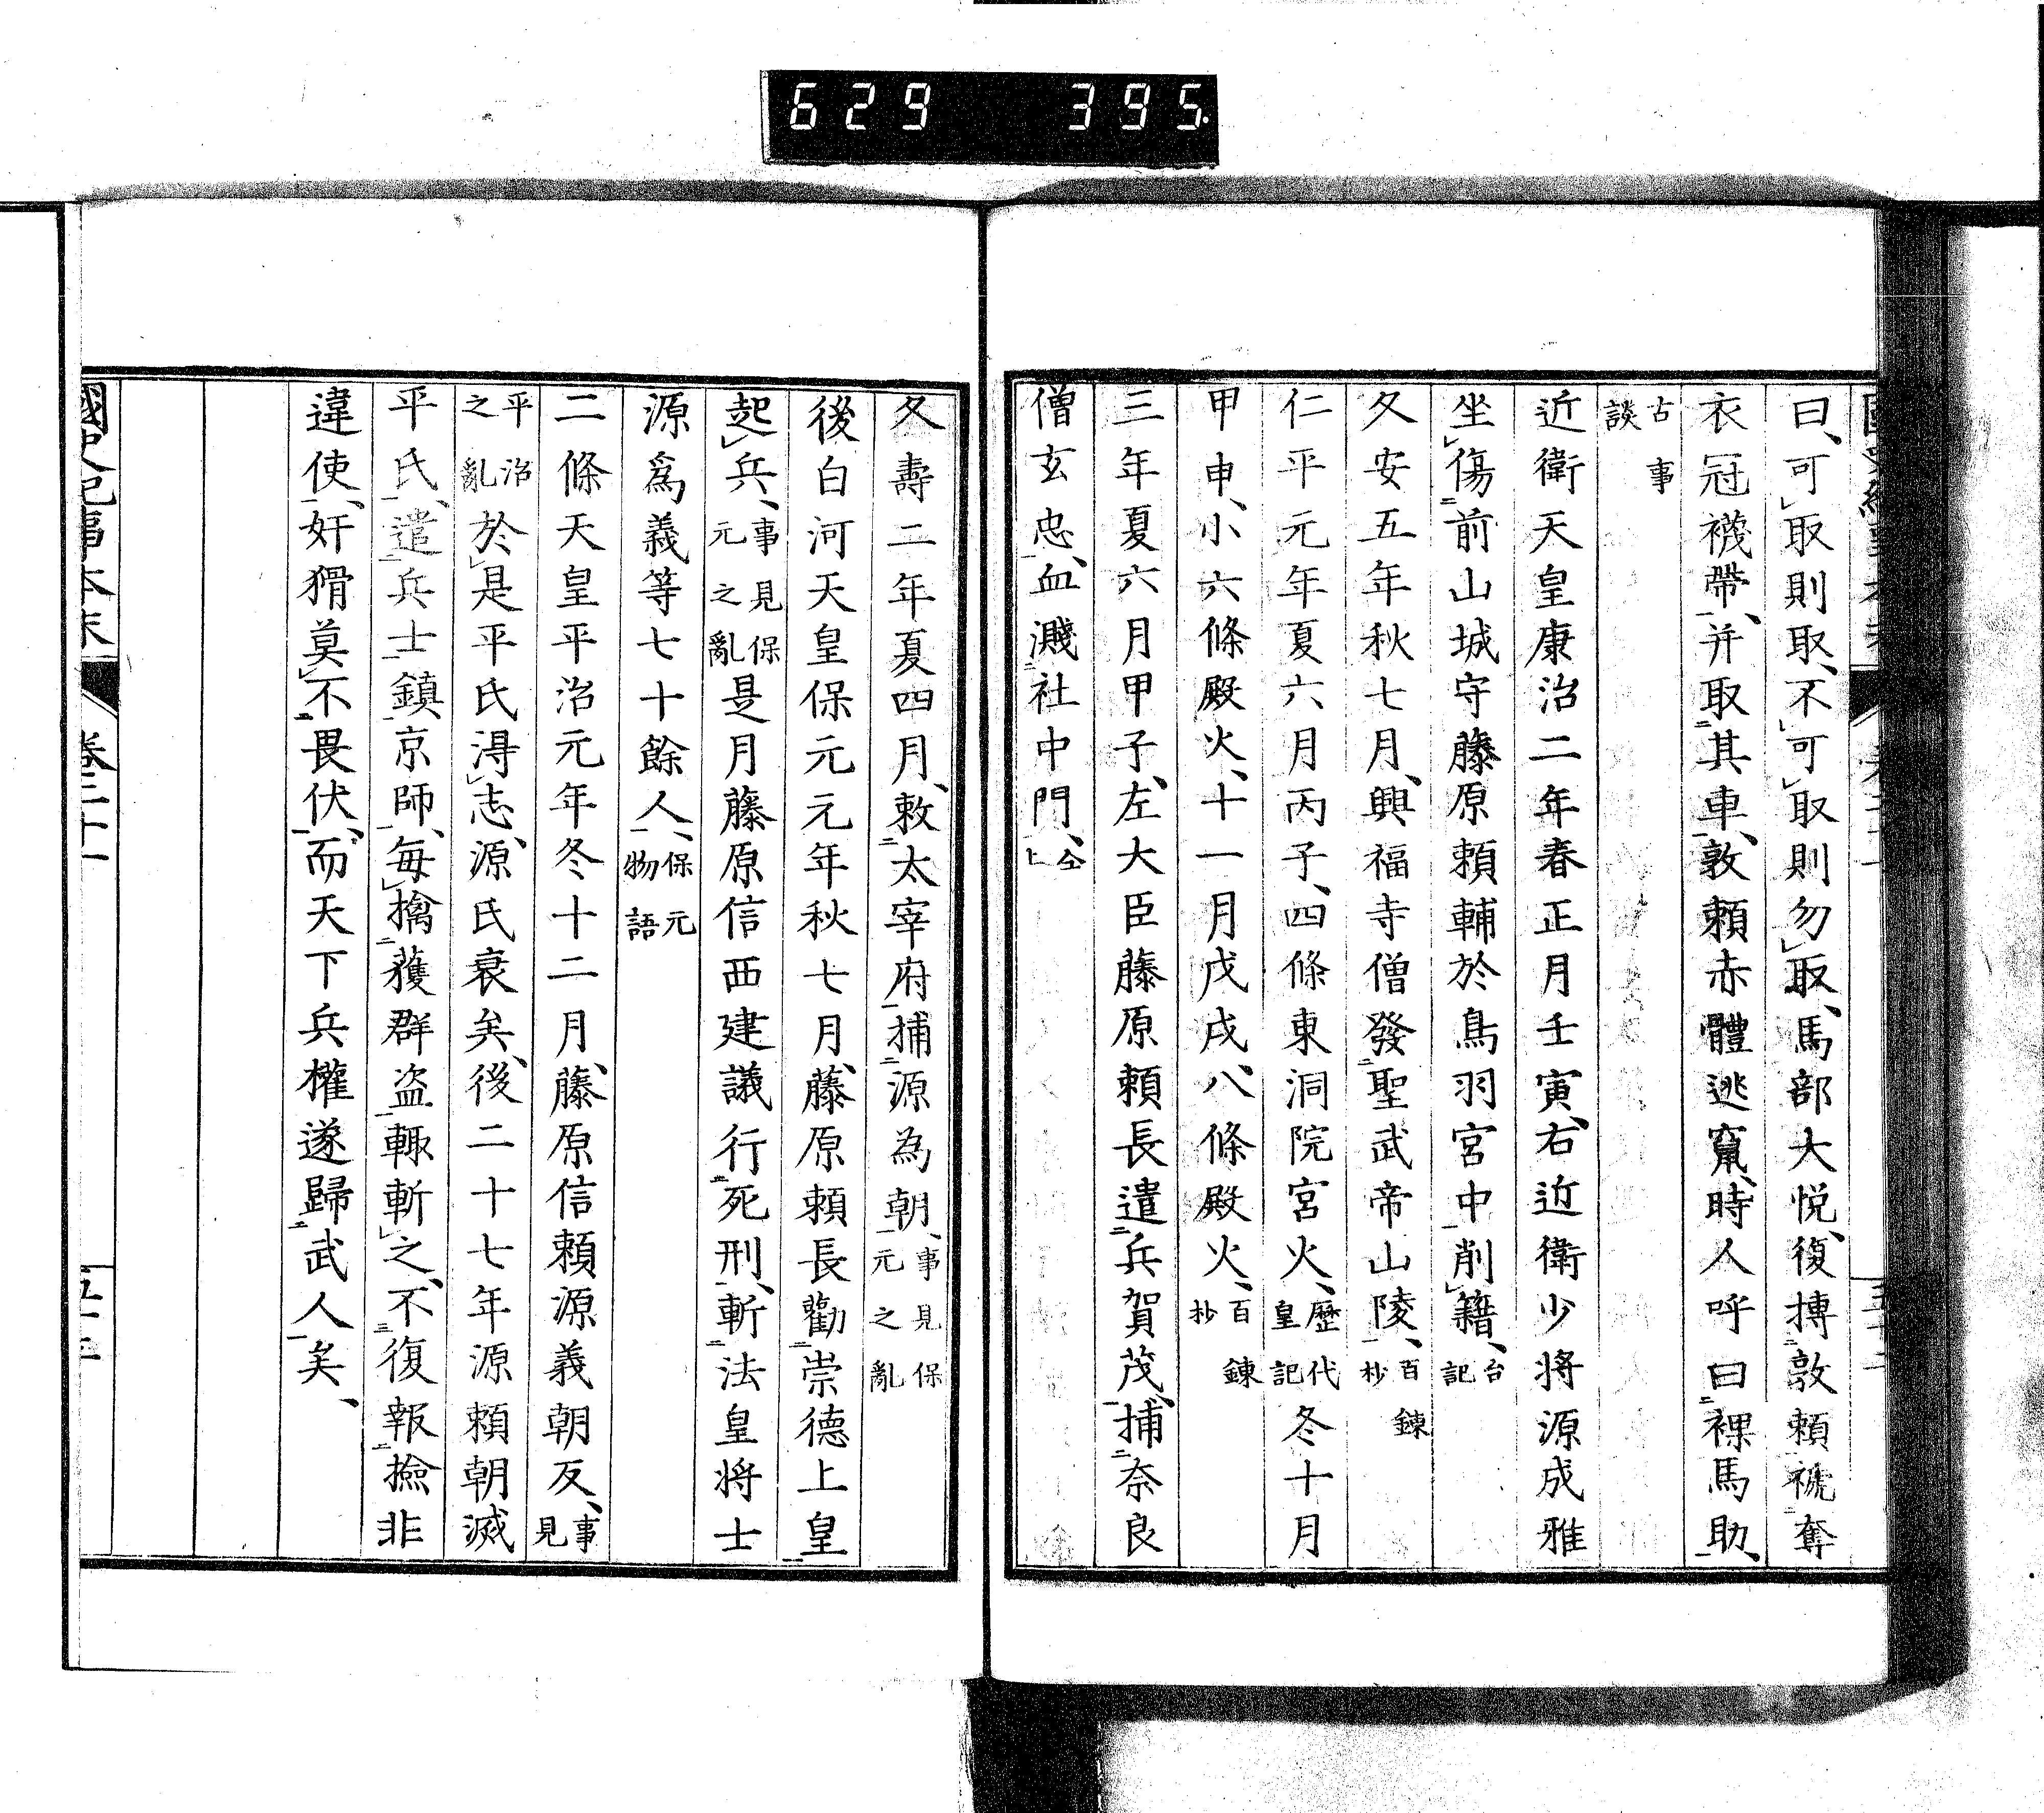 629 395.
曰、可取則取、不可取則勿取、馬部大悦、復摶敦頼褫奪
衣冠襪帶、并取其車、敦頼赤體逃竄、時人呼曰裸馬助、
古事談
近衛天皇康治二年春正月壬寅、右近衛少将源成雅
坐傷前山城守藤原頼輔於鳥羽宮中削籍、台記
久安五年秋七月、興福寺僧發聖武帝山陵、百錬抄
仁平元年夏六月丙子、四條東洞院宮火、歷代皇記冬十月
甲申、小六條殿火、十一月戊戌、八條殿火、百錬抄
三年夏六月甲子、左大臣藤原頼長遣兵賀茂、捕奈良
僧玄忠、血濺社中門、仝上
久壽二年夏四月、敕太宰府捕源為朝、事見保元之亂
後白河天皇保元元年秋七月、藤原頼長勸崇德上皇
起兵、事見保元之亂是月藤原信西建議行死刑、斬法皇将士
源為義等七十餘人、保元物語
二條天皇平治元年冬十二月、藤原信頼源義朝反、事見
平治之亂於是平氏得志、源氏衰矣、後二十七年源頼朝滅
平氏、遣兵士鎮京師、每擒獲群盗輙斬之、不復報撿非
違使、奸猾莫不畏伏、而天下兵權遂歸武人矣、
國史紀事本末 卷二十一